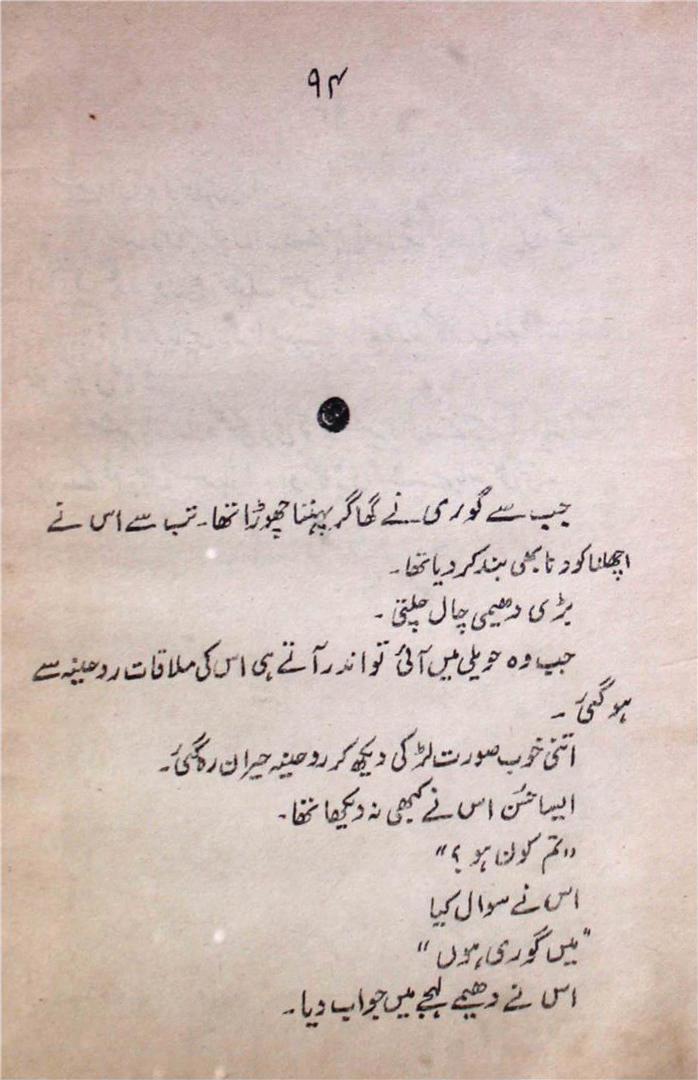 ۹۴
جب سے گوری نے گھاگر پہننا چھوڑا تھا۔ تب سے اس نے
اچھلنا کودنا بھی بند کر دیا تھا۔
بڑی دھیمی چال چلتی ۔
جب وہ حویلی میں آئی تو اندر آتے ہی اس کی ملاقات روحینہ سے
ہو گئی ۔
اتنی خوب صورت لڑکی دیکھ کر روحینہ حیران رہ گئی۔
ایسا حُسن اس نے کبھی نہ دیکھا تھا۔
"تم کون ہو ؟"
اس نے سوال کیا
"میں گوری ہوں"
اس نے دھیمے لہجے میں جواب دیا۔